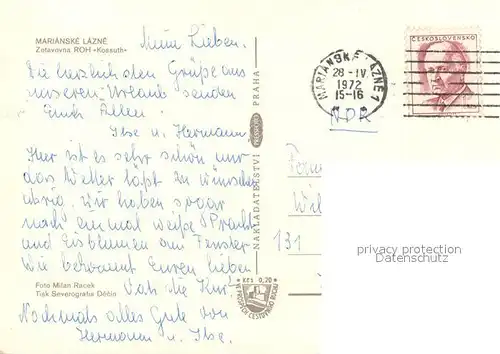 MARIÁNSKÉ LÁZNĚ
Zotavovna ROH «Kossuth»
Meine Lieben.
Die herzlichsten Grüße aus
unseren Urlaub senden
Euch Allen.
Ilse u. Hermann.
Hier ist es sehr schön nur
das Wetter läßt zu wünschen
übrig. Wir haben sogar
noch einmal weiße Pracht
und Eisblumen am Fenster
Wie bekommt Euren lieben
die Kur?
Nochmals alles Gute von
Hermann u. Ilse.
Foto Milan Racek
Tisk Severografia Děčín
NAKLADATELSTVÍ PRESSFOTO PRAHA
Kčs 0,20
VE PROSPĚCH CESTOVNÍHO RUCHU
ČESKOSLOVENSKO
MARIÁNSKÉ LÁZNĚ 1
28.-IV.
1972
15-16
NDR
131
privacy protection
www.ansichtskarten-center.de